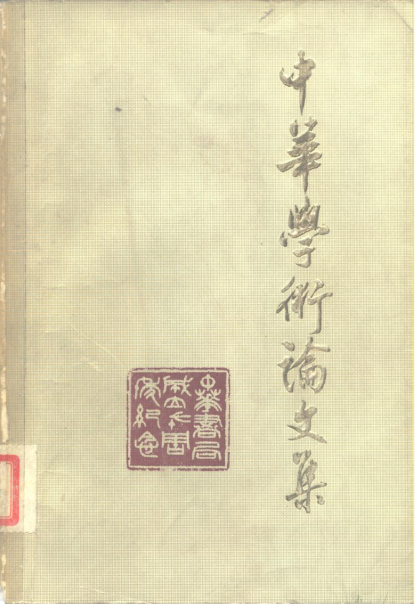 中華學術論文集
中華書局
成立七十周
年紀念